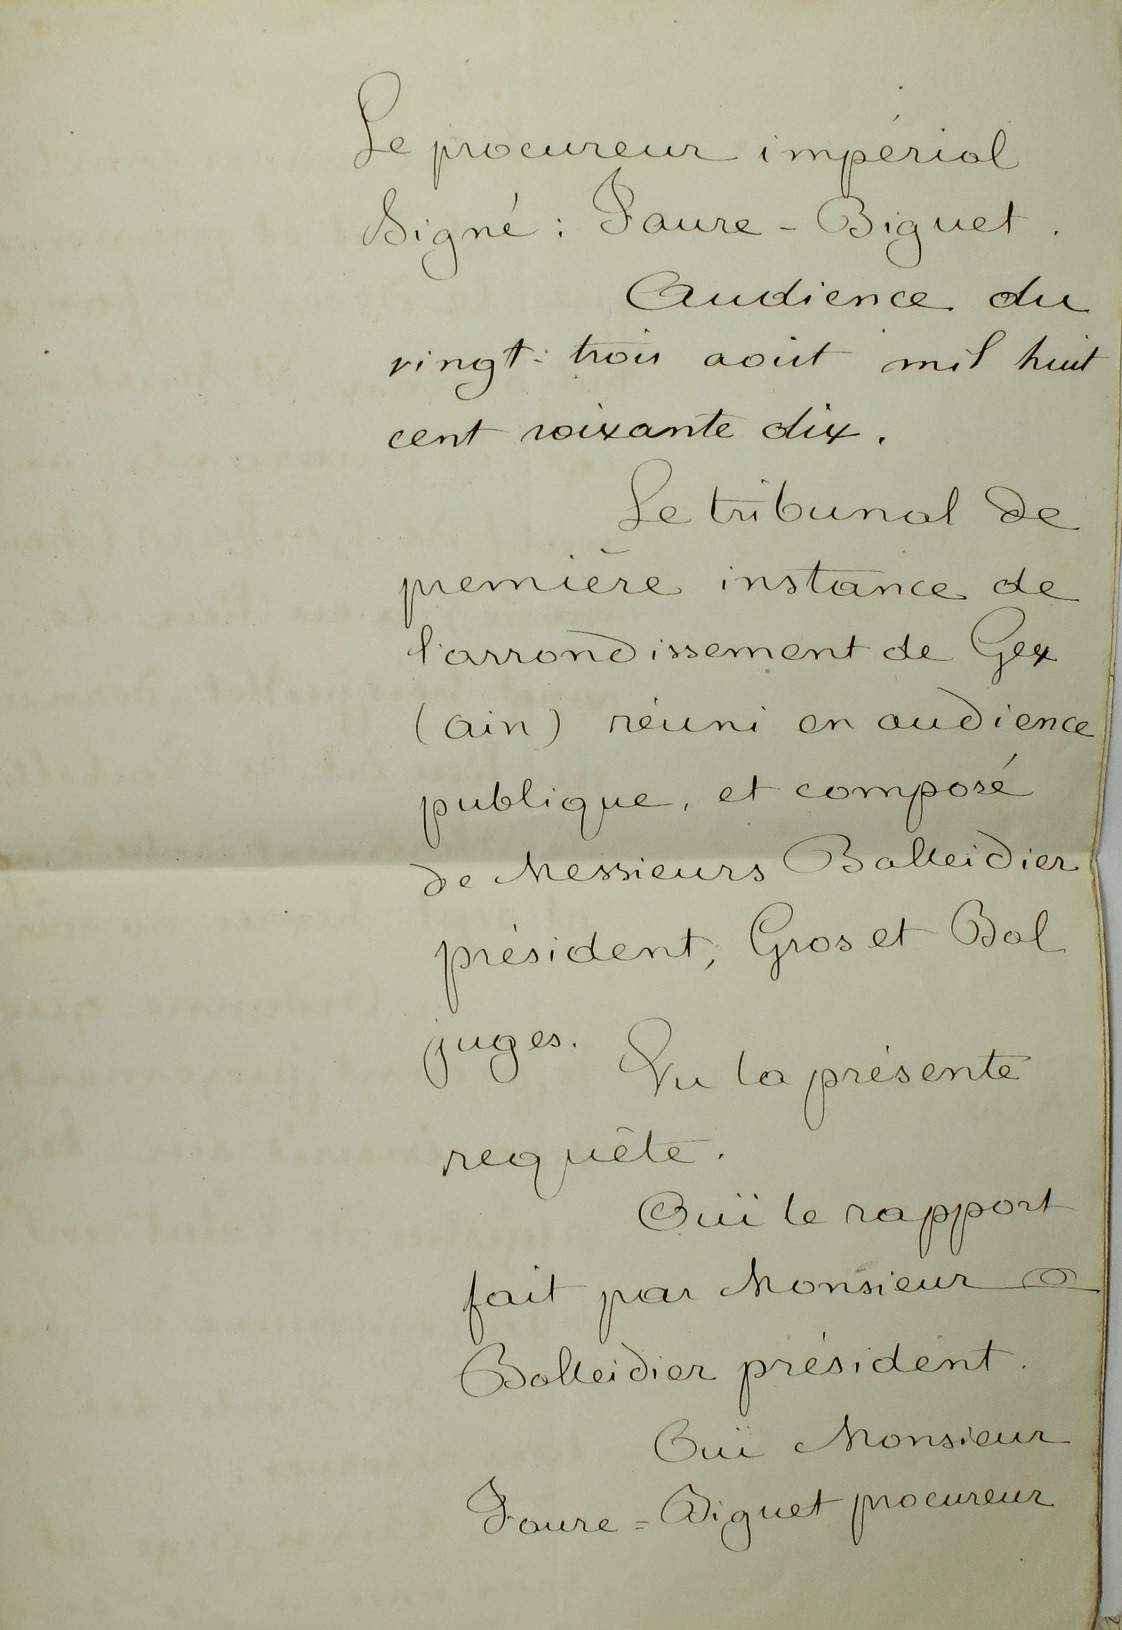 Le procureur impérial
Signé : Faure - Biguet.
Audience du
vingt-trois août mil huit
cent soixante dix.
Le tribunal de
première instance de
l'arrondissement de Gex
(Ain) réuni en audience
publique, et composé
de Messieurs Balleidier
président, Gros et Bal
juges.
Vu la présente
requête.
Ouï le rapport
fait par Monsieur
Balleidier président.
Ouï Monsieur
Faure = Biguet procureur